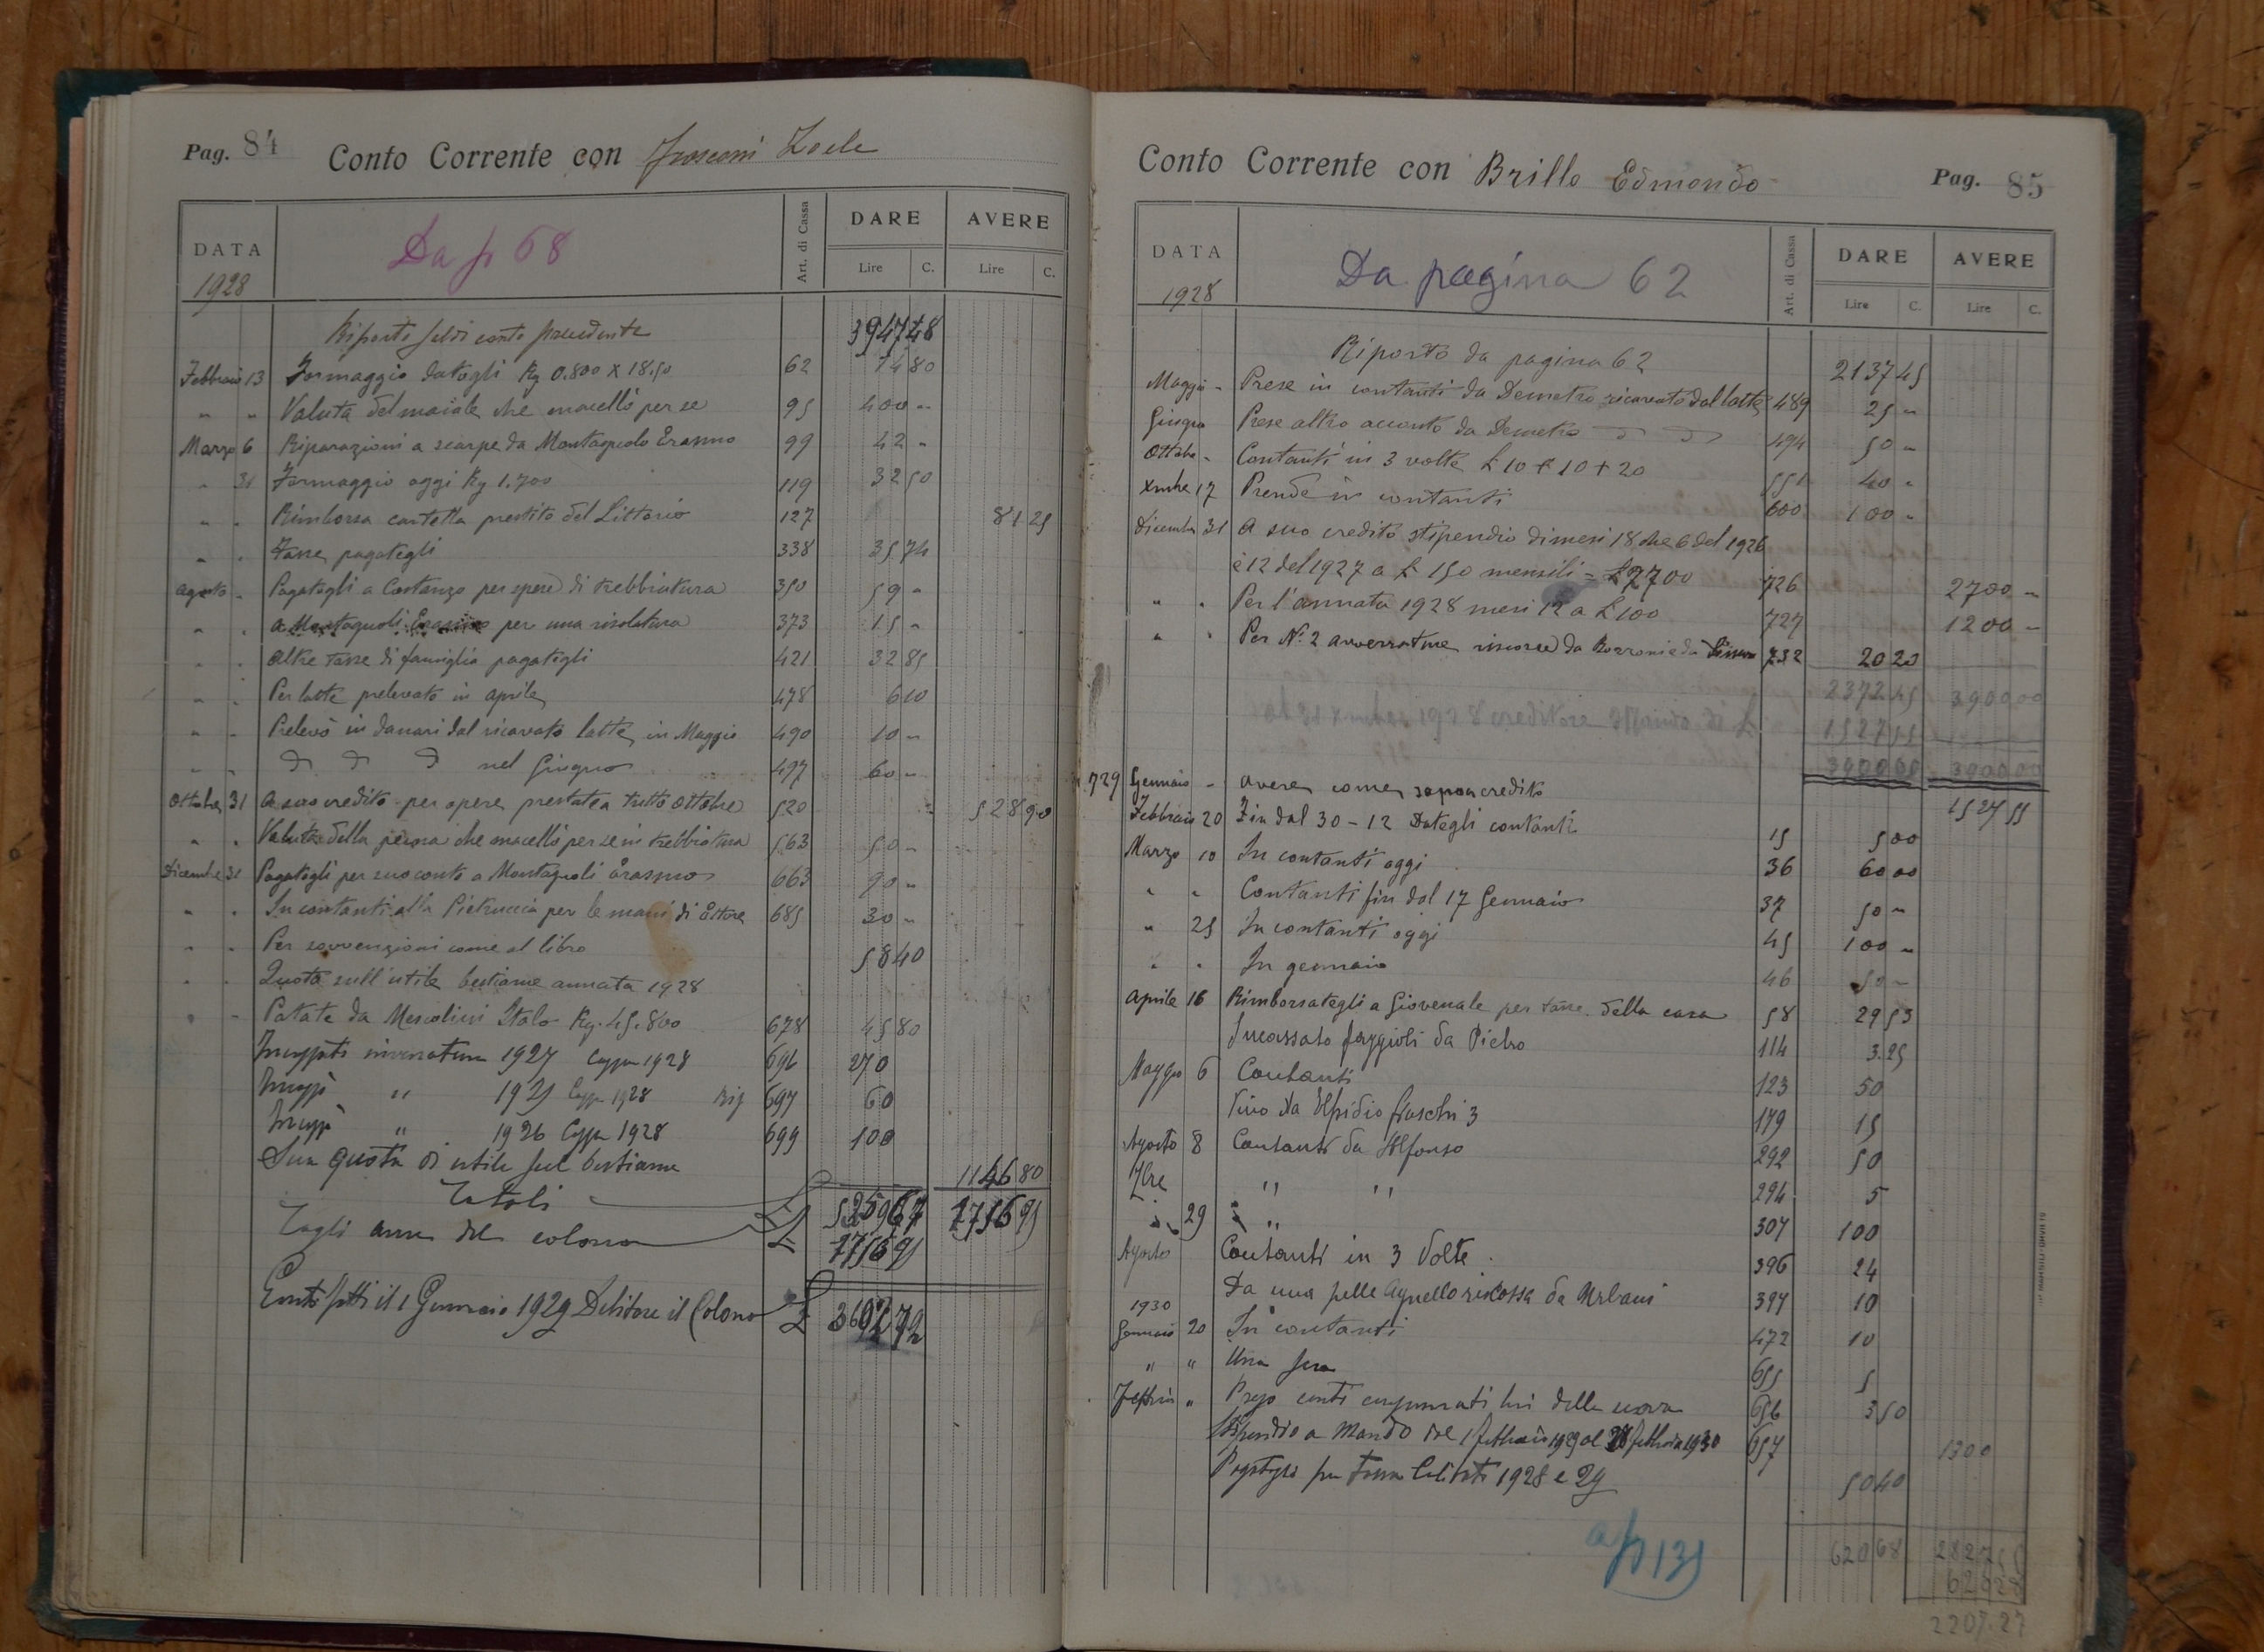 Pag. 84 Conto Corrente con
DATA Da p 68 Art. di Cassa DARE AVERE
1928 Lire C. Lire C.
Riporto saldi conto precedente 3947 48
Febbraio 13 Formaggio datogli Kg 0.800 x 18.50 62 14 80
" " Valuta del maiale che macellò per se 95 400 "
Marzo 6 Riparazioni a scarpe da Montagnolo Erasmo 99 42 "
" 31 Formaggio oggi Kg 1.700 119 32 50
" " Rimborsa cartella prestito del Littorio 127 81 25
" " Tasse pagategli 338 35 74
Agosto " Pagatogli a Costanzo per spese di trebbiatura 350 59 "
" " a Montagnoli Erasmo per una risolatura 373 15 "
" " Altre tasse di famiglia pagategli 421 32 85
" " Per latte prelevato in aprile 478 6 10
" " Prelevò in danari dal ricavato latte in Maggio 490 10 "
" " D D D nel Giugno 497 60 "
Ottobre 31 A suo credito per opere prestate a tutto ottobre 520 528 90
" " Valuta della pecora che macellò per se in trebbiatura 563 50 "
Dicembre 31 Pagatogli per suo conto a Montagnoli Erasmo 663 90 "
" " In contanti alla Pietruccia per le mani di Ettore 685 30 "
" " Per sovvenzioni come al libro 58 40
" " Quota sull'utile bestiame annata 1928
" " Patate da Mescolini Italo Kg. 45.800 678 45 80
invernatura 1927 1928 696 270
" 1925 1928 697 60
" 1926 1928 699 100
Sua quota di utile sul bestiame 1146 80
Totali 5259 67
del colono
Conti fatti il 1 Gennaio 1929 Debitore il Colono £ 3692 72
Conto Corrente con Brillo Edmondo Pag. 85
DATA Da pagina 62 Art. di Cassa DARE AVERE
1928 Lire C. Lire C.
Riporto da pagina 62 2137 45
Maggio " Prese in contanti da Demetro ricavato dal latte 489 25 "
Giugno Prese altro acconto da Demetro D D 494 50 "
Ottobre " Contanti in 3 volte £ 10 + 10 + 20 551 40 "
Xmbre 17 Prende in contanti 600 100 "
Dicembre 31 A suo credito stipendio di mesi 18 che 6 del 1926
e 12 del 1927 a £ 150 mensili = £ 2700 726 2700 "
" " Per l'annata 1928 mesi 12 a £ 100 727 1200 "
" " Per N° 2 riscosse da 732 20 20
2372 45 3900 00
1527 55
3900 00 3900 00
729 Gennaio " Avere come sopra credito 1527 55
Febbraio 20 Fin dal 30-12 Dategli contanti 15 500
Marzo 10 In contanti oggi 36 60 00
" " Contanti fin dal 17 Gennaio 37 50 "
" 25 In contanti oggi 45 100 "
" " In gennaio 46 50 "
Aprile 16 Rimborsategli a Giovenale per tasse della casa 58 29 53
Incassato faggioli da Pietro 114 3.25
Maggio 6 Contanti 123 50
Vino da Elpidio 3 179 15
Agosto 8 Contanti da Alfonso 292 50
7bre " " 294 5
29 " 307 100
Agosto Contanti in 3 Volte 396 24
Da una pelle Agnello riscossa da Urbani 397 10
1930
Gennaio 20 In contanti 472 10
" " Una sera 655 5
" conti lui delle uova 656 3 50
Stipendio a Mando dal 1 febbraio 1929 al 28 febbraio 1930 657 1300
per tassa Celibati 1928 e 29 50 40
a p 135
620 68 2827 55
620 28
2207.27